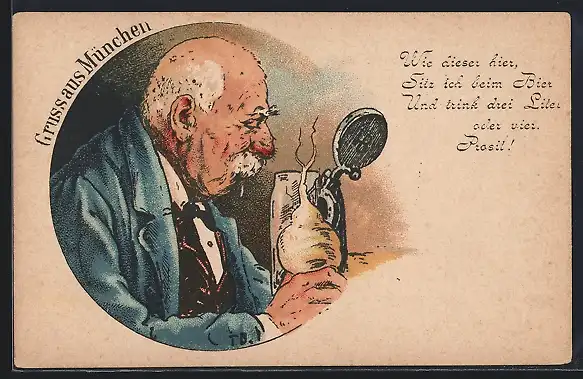 Gruss aus München
Wie dieser hier,
Sitz ich beim Bier
Und trink drei Liter
oder vier.
Prosit!
TB.